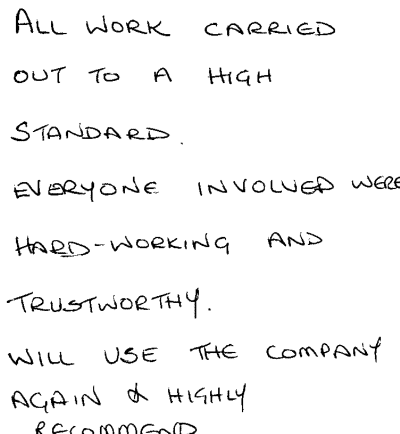 ALL WORK CARRIED
OUT TO A HIGH
STANDARD.
EVERYONE INVOLVED WERE
HARD-WORKING AND
TRUSTWORTHY.
WILL USE THE COMPANY
AGAIN & HIGHLY
RECOMMEND